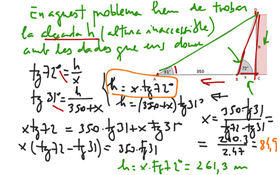 En aquest problema hem de trobar
la alçada h (altura inaccessible)
amb les dades que ens donen
tg 72° = h/x
tg 31° = h/350+x
h = x·tg 72°
h = (350+x) tg 31°
x tg 72 = 350·tg 31 + x tg 31°
x (tg 72 - tg 31) = 350·tg 31
x = 350·tg 31/tg 72 - tg 31 =
= 210.3/2.47 = 84,9
h = x·tg 72° = 261,3 m
31°
350
72°
x
h